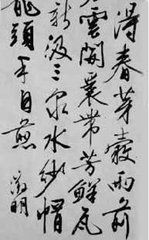 得春芽穀雨前
雲開裹帶芳鮮瓦
新汲三泉水紗帽
籠頭手自煎 徵明